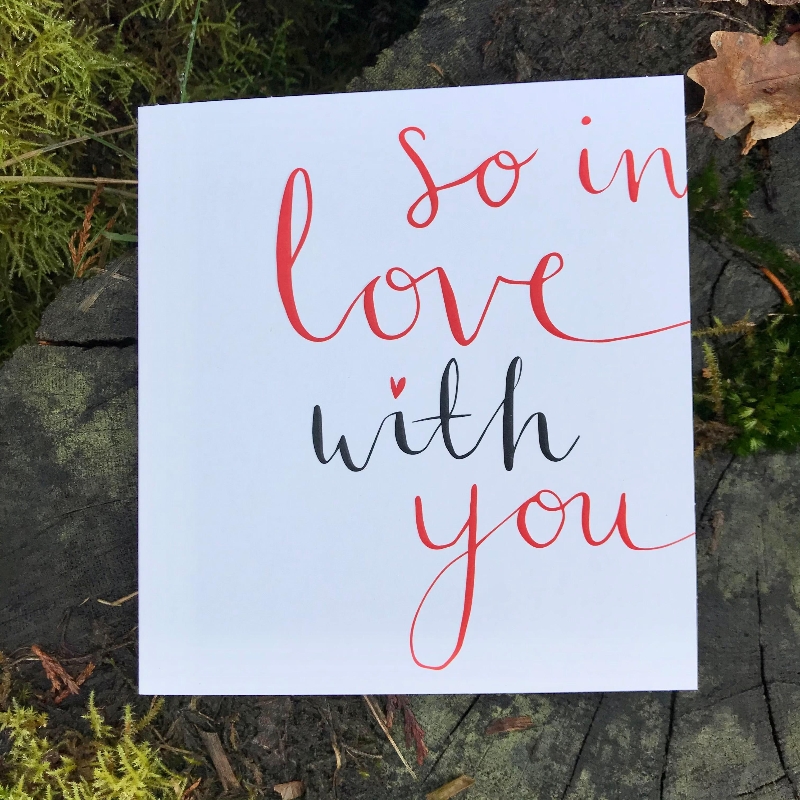 so in
love
with
you